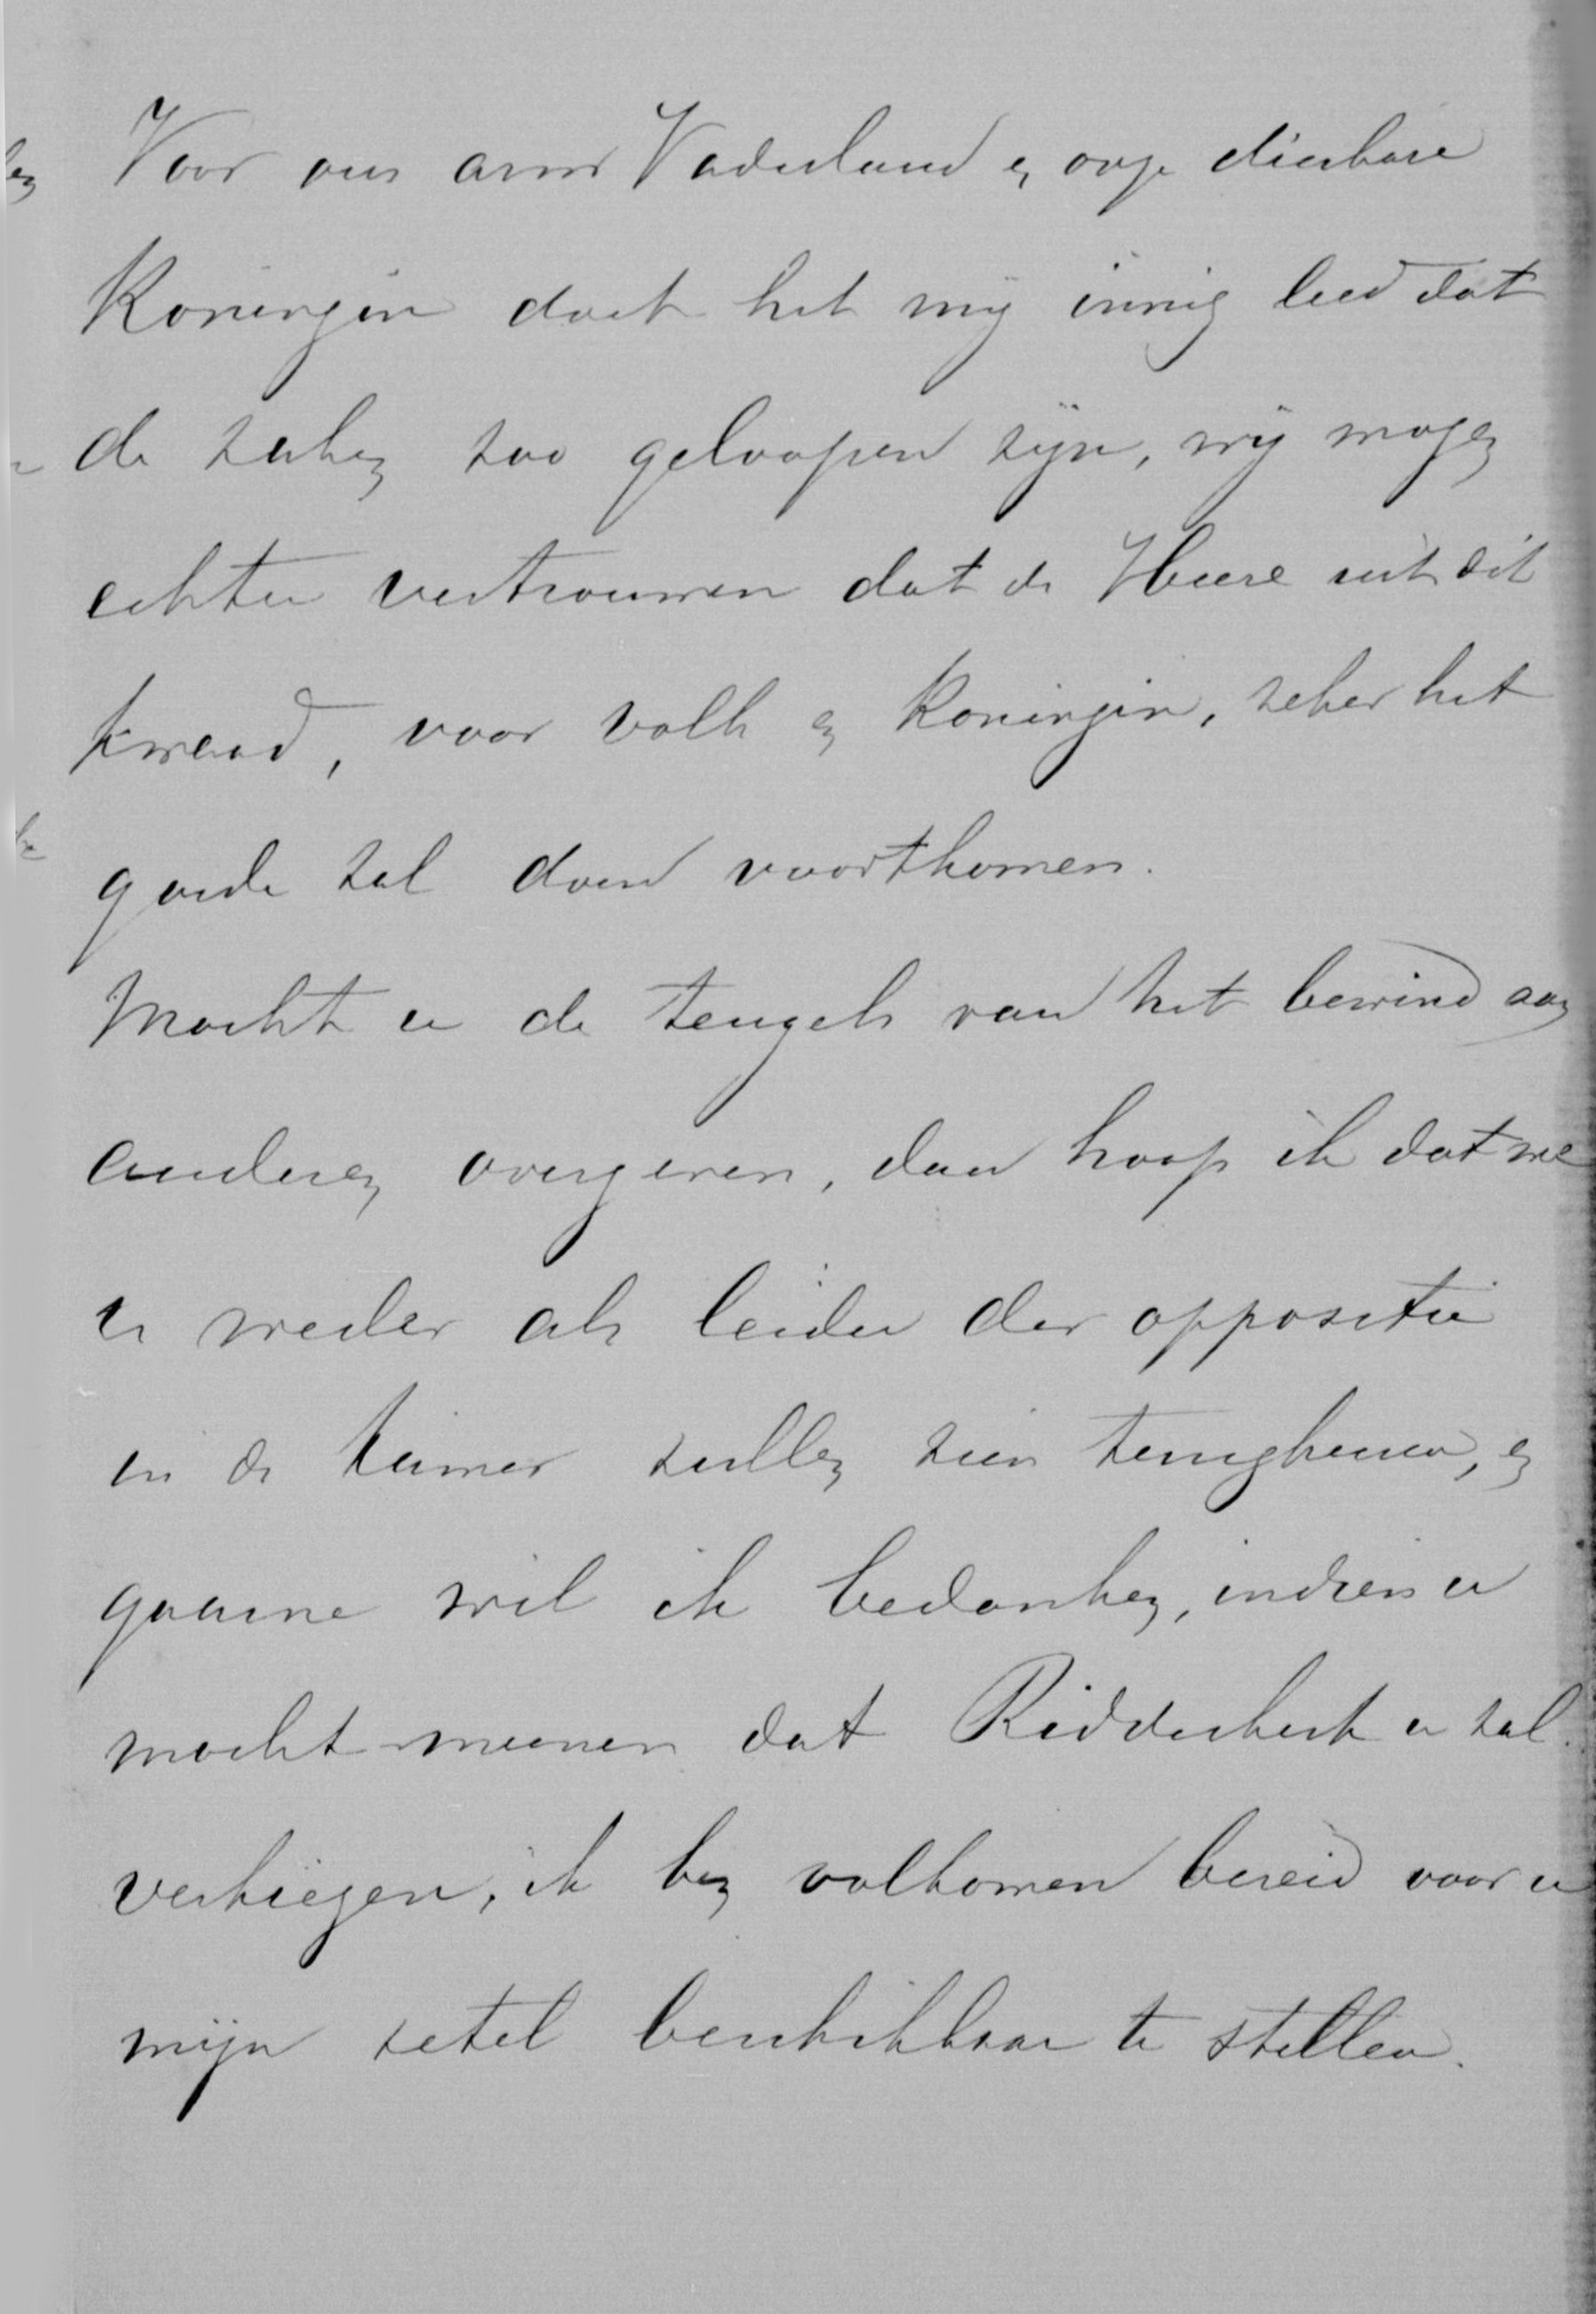 Voor ons arm Vaderland en onze dierbare
Koningin doet het mij innig leed dat
de zaken zoo geloopen zijn, wij mogen
echter vertrouwen dat de Heere uit dit
kwaad, voor volk en Koningin, zeker het
goede zal doen voortkomen.
Mocht u de teugels van het bewind aan
anderen overgeven, dan hoop ik dat we
u weder als leider der oppositie
in de kamer zullen zien terugkeeren, en
gaarne wil ik bedanken, indien u
mocht meenen dat Ridderkerk u zal
verkiezen, ik ben volkomen bereid voor u
mijn zetel beschikbaar te stellen.